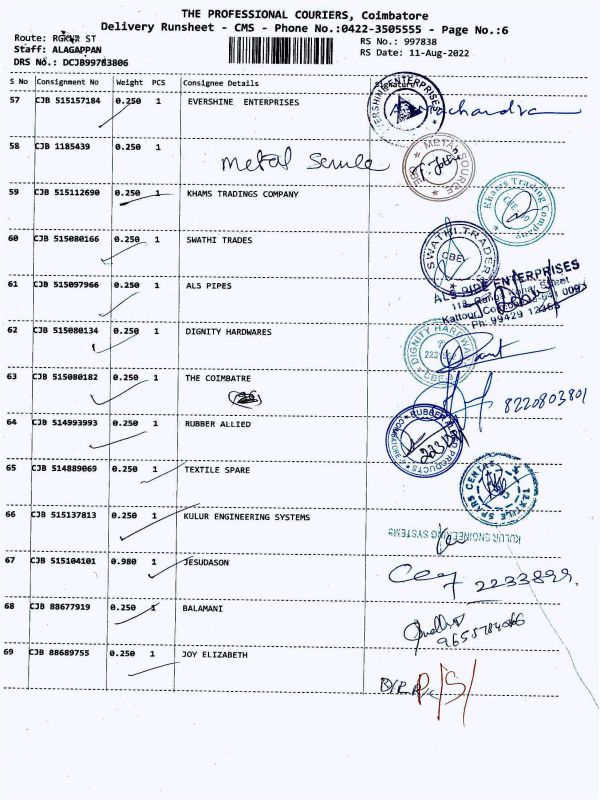 THE PROFESSIONAL COURIERS, Coimbatore
Delivery Runsheet - CMS - Phone No.:0422-3505555 - Page No.:6
Route: RGKWR ST
RS No.: 997838
Staff: ALAGAPPAN
RS Date: 11-Aug-2022
DRS No.: DCJB99783806
S No Consignment No Weight PCS Consignee Details Signature
57 CJB 515157184 0.250 1 EVERSHINE ENTERPRISES
58 CJB 1185439 0.250 1
METAL SOURCE
59 CJB 515112690 0.250 1 KHAMS TRADINGS COMPANY
Khams Trading Company
60 CJB 515080166 0.250 1 SWATHI TRADES
SWATHI TRADERS
CBE
61 CJB 515097966 0.250 1 ALS PIPES
ALS PIPE ENTERPRISES
Ph: 99429
62 CJB 515080134 0.250 1 DIGNITY HARDWARES
DIGNITY HARDWA
63 CJB 515080182 0.250 1 THE COIMBATRE
8220803801
64 CJB 514993993 0.250 1 RUBBER ALLIED
RUBBER PRODUCTS
65 CJB 514889069 0.250 1 TEXTILE SPARE
TEXTILE SPARS CENTRE
66 CJB 515137813 0.250 1 KULUR ENGINEERING SYSTEMS
KULUR ENGINEERING SYSTEMS
67 CJB 515104101 0.980 1 JESUDASON
2233899
68 CJB 88677919 0.250 1 BALAMANI
69 CJB 88689755 0.250 1 JOY ELIZABETH